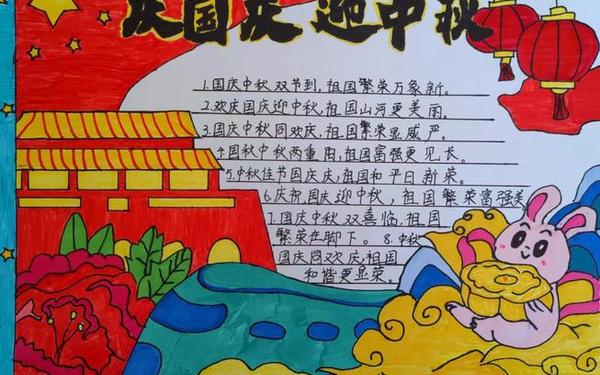 庆国庆 迎中秋
1.国庆中秋双节到,祖国繁荣万象新。
2.欢庆国庆迎中秋,祖国山河更美丽。
3.国庆中秋同欢庆,祖国繁荣显威严。
4.国秋中秋两重阳,祖国富强更见长。
5.中秋佳节国庆庆,祖国和平日新荣。
6.庆祝国庆迎中秋,祖国繁荣富强美
7.国庆中秋双喜临,祖国
繁荣在脚下。8.中秋
国庆同欢庆,祖国
和谐更显荣。